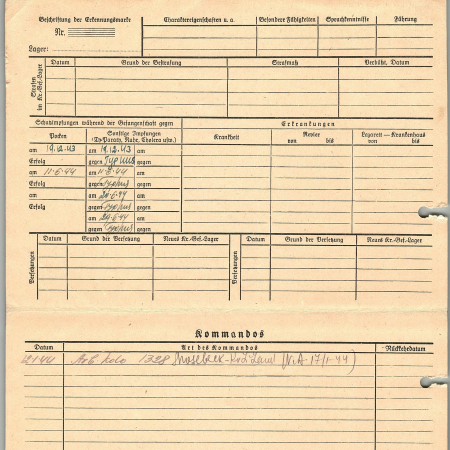 Beschriftung der Erkennungsmarke
Nr.
Lager:
Charaktereigenschaften u. a.
Besondere Fähigkeiten
Sprachkenntnisse
Führung
Strafen im Kr.-Gef.-Lager
Datum
Grund der Bestrafung
Strafmaß
Verbüßt, Datum
Schutzimpfungen während der Gefangenschaft gegen
Erkrankungen
Pocken
Sonstige Impfungen
(Ty. Paraty, Ruhr, Cholera usw.)
Krankheit
Revier
von bis
Lazarett — Krankenhaus
von bis
am 19.12.43 am 19.12.43 am
Erfolg gegen Typhus gegen
am 11-6-44 am 11-6-44 am
Erfolg gegen Typhus gegen
am am 44 am
Erfolg gegen Typhus gegen
am 44 am
gegen Typhus gegen
Versetzungen
Datum
Grund der Versetzung
Neues Kr.-Gef.-Lager
Versetzungen
Datum
Grund der Versetzung
Neues Kr.-Gef.-Lager
Kommandos
Datum
Art des Kommandos
Rückkehrdatum
1-44 Arb Kdo 1328